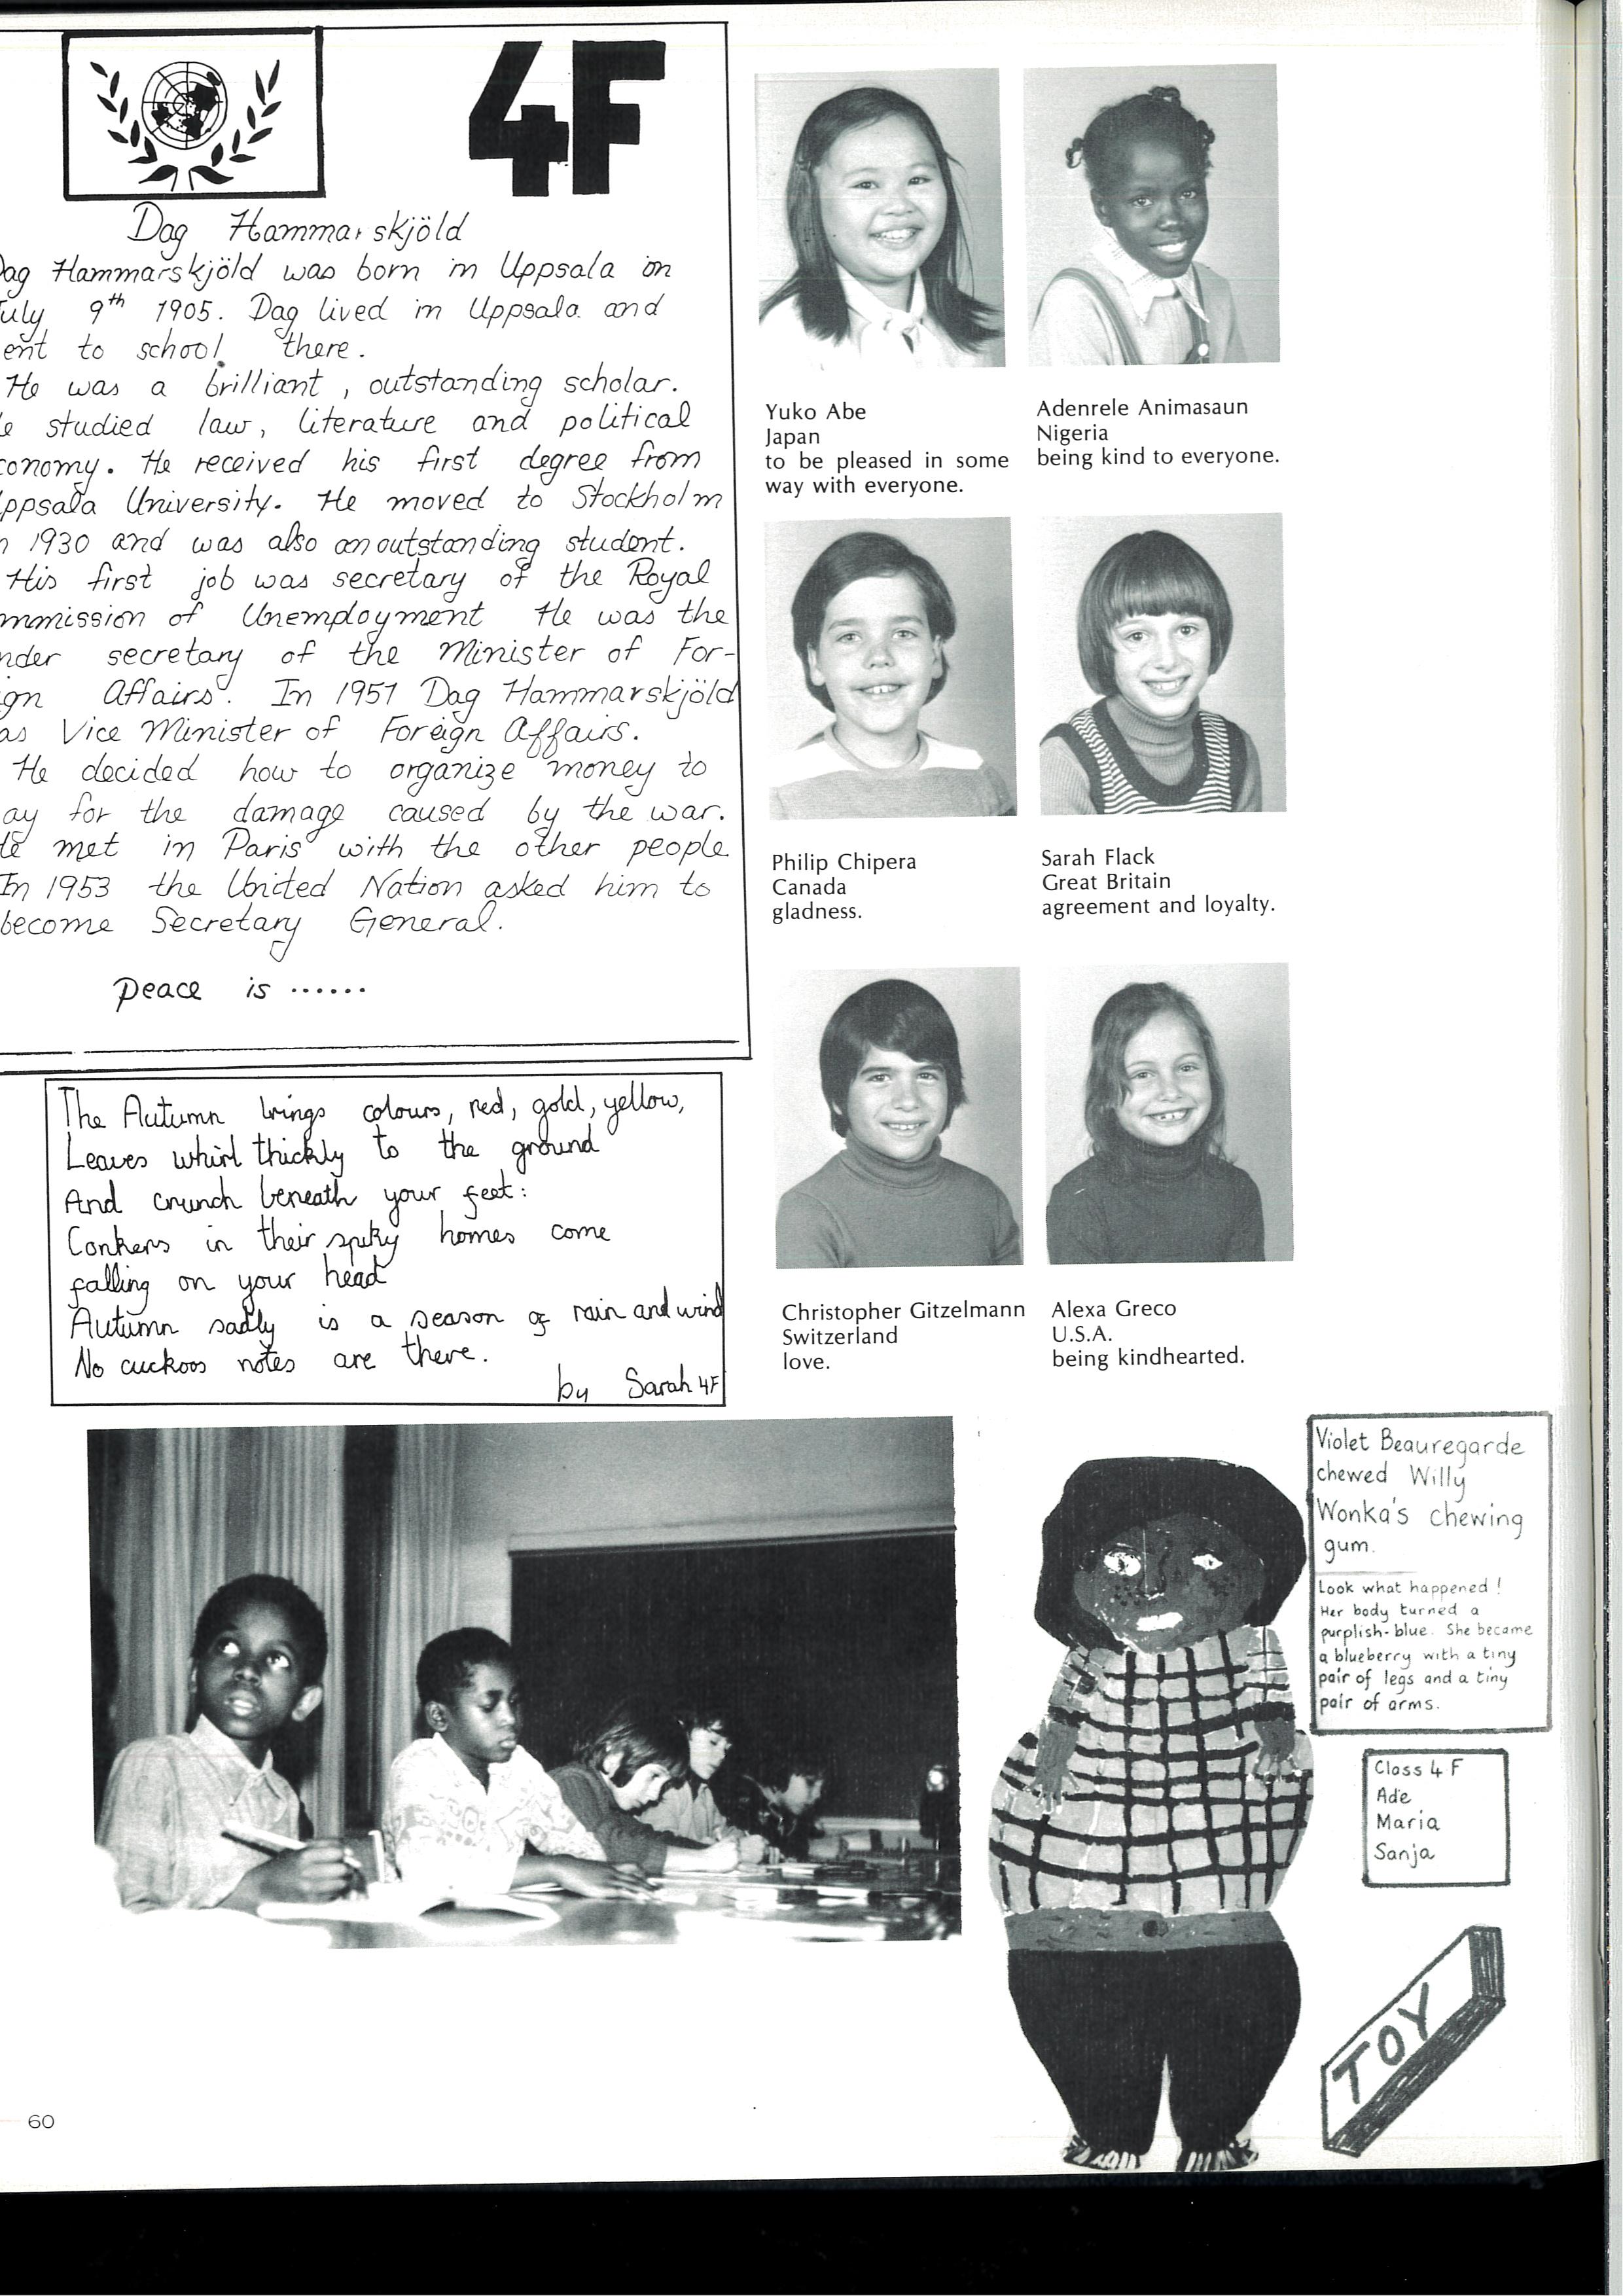 4F
Dag Hammarskjöld
Dag Hammarskjöld was born in Uppsala on
July 9th 1905. Dag lived in Uppsala and
ent to school there.
He was a brilliant, outstanding scholar.
e studied law, literature and political
conomy. He received his first degree from
ppsala University. He moved to Stockholm
n 1930 and was also an outstanding student.
His first job was secretary of the Royal
mmission of Unemployment He was the
nder secretary of the Minister of For-
ign Affairs. In 1951 Dag Hammarskjöld
as Vice Minister of Foreign Affairs.
He decided how to organize money to
ay for the damage caused by the war.
He met in Paris with the other people
In 1953 the United Nation asked him to
become Secretary General.
peace is ......
The Autumn brings colours, red, gold, yellow,
Leaves whirl thickly to the ground
And crunch beneath your feet:
Conkers in their spiky homes come
falling on your head
Autumn sadly is a season of rain and wind
No cuckoos notes are there.
by Sarah 4F
Yuko Abe
Japan
to be pleased in some
way with everyone.
Adenrele Animasaun
Nigeria
being kind to everyone.
Philip Chipera
Canada
gladness.
Sarah Flack
Great Britain
agreement and loyalty.
Christopher Gitzelmann
Switzerland
love.
Alexa Greco
U.S.A.
being kindhearted.
Violet Beauregarde
chewed Willy
Wonka's chewing
gum.
Look what happened!
Her body turned a
purplish-blue. She became
a blueberry with a tiny
pair of legs and a tiny
pair of arms.
Class 4 F
Ade
Maria
Sanja
TOY
60